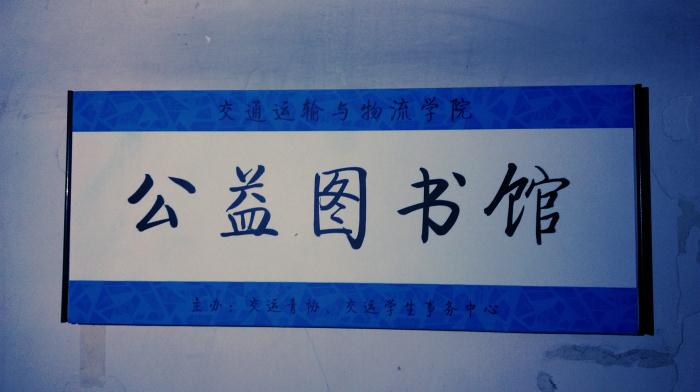 交通运输与物流学院
公益图书馆
主办：交运青协、交运学生事务中心